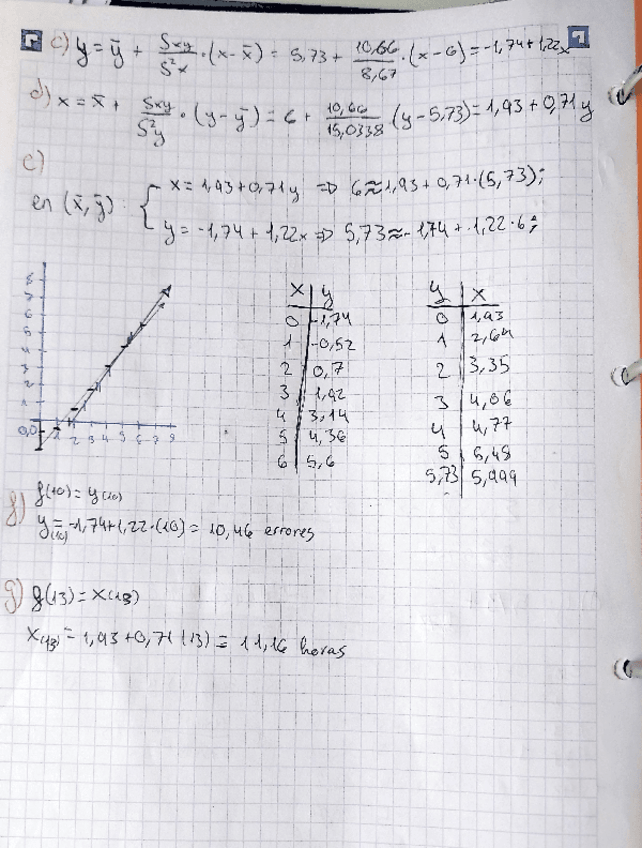 c) y = ȳ + Sxy/S²x · (x - x̄) = 5,73 + 10,66/8,67 · (x - 6) = -1,74 + 1,22x
d) x = x̄ + Sxy/S²y · (y - ȳ) = 6 + 10,66/15,0338 · (y - 5,73) = 1,93 + 0,71y
e)
x = 1,93 + 0,71y ⇒ 6 ≈ 1,93 + 0,71·(5,73);
en (x̄, ȳ): {
y = -1,74 + 1,22x ⇒ 5,73 ≈ -1,74 + 1,22·6;
x | y
0 | -1,74
1 | -0,52
2 | 0,7
3 | 1,92
4 | 3,14
5 | 4,36
6 | 5,6
y | x
0 | 1,93
1 | 2,64
2 | 3,35
3 | 4,06
4 | 4,77
5 | 5,48
5,73 | 5,999
8
7
6
5
4
3
2
1
0,0 1 2 3 4 5 6 7 8
f) f(10) = y(10)
y(10) = -1,74 + 1,22·(10) = 10,46 errores
g) g(13) = x(13)
x(13) = 1,93 + 0,71(13) = 11,16 horas